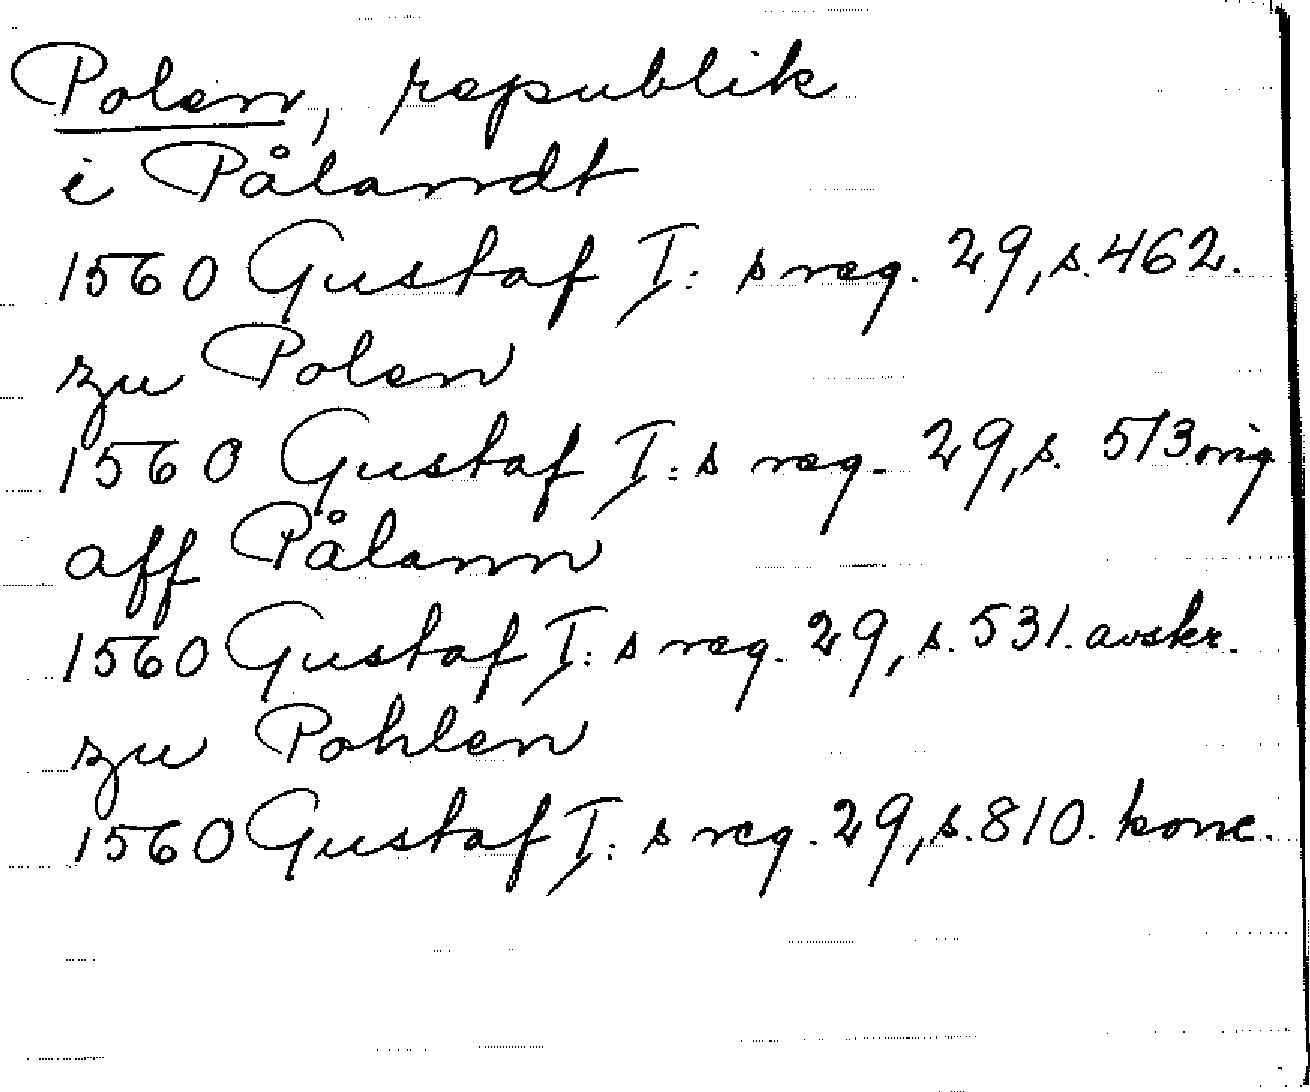 Polen, republik
i Pålandt
1560 Gustaf I: s reg. 29, s. 462.
zu Polen
1560 Gustaf I: s reg. 29, s. 513 orig
aff Pålenn
1560 Gustaf I: s reg. 29, s. 531. avskr.
zu Pohlen
1560 Gustaf I: s reg. 29, s. 810. konc.